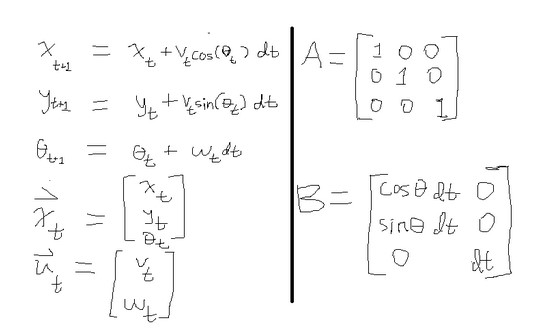 x_{t+1} = x_t + v_t cos(θ_t) dt
y_{t+1} = y_t + v_t sin(θ_t) dt
θ_{t+1} = θ_t + w_t dt
\vec{x}_t = [x_t
y_t
θ_t]
\vec{u}_t = [v_t
w_t]
A = [1 0 0
0 1 0
0 0 1]
B = [cosθ dt 0
sinθ dt 0
0 dt]